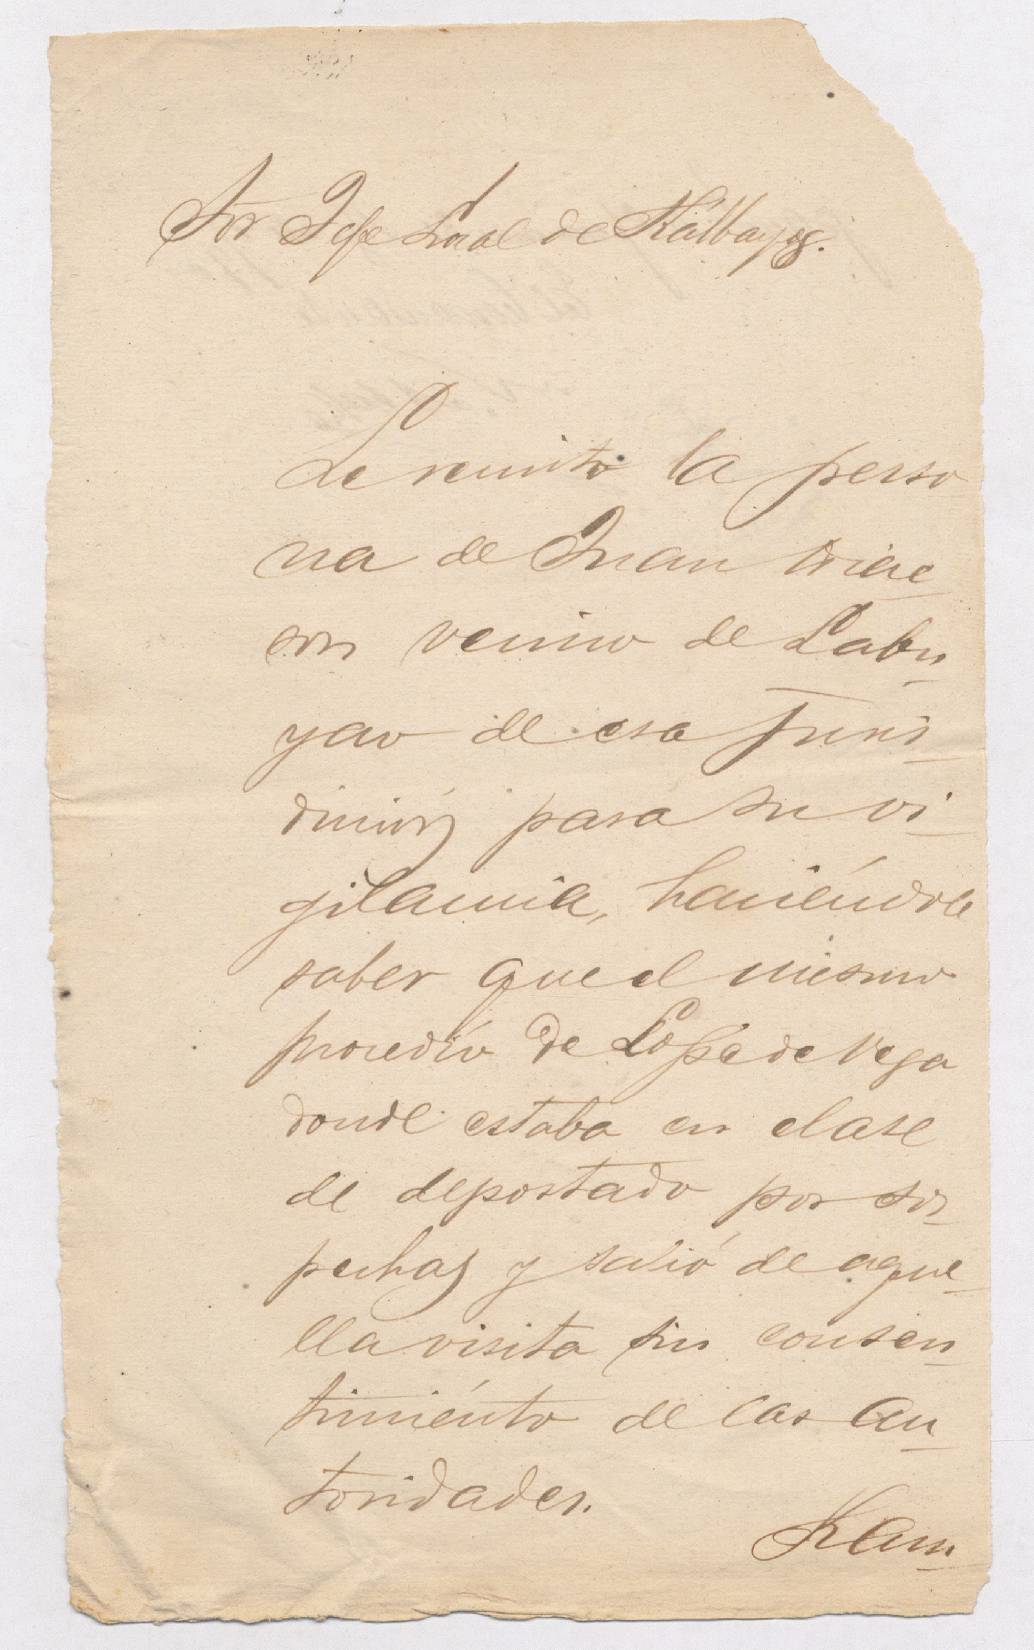 Sor Jefe Local de Kálbayog.
Le remito la perso
na de Juan
son vecino de Labu_
yao de esa juris_
dicción para su vi_
gilancia, haciéndole
saber que el mismo
procedío de Lope de Vega
donde estaba en clase
de deportado por sos_
pechas y salió de aque_
lla visita sin consen_
timiénto de las au_
toridades.
Kam_